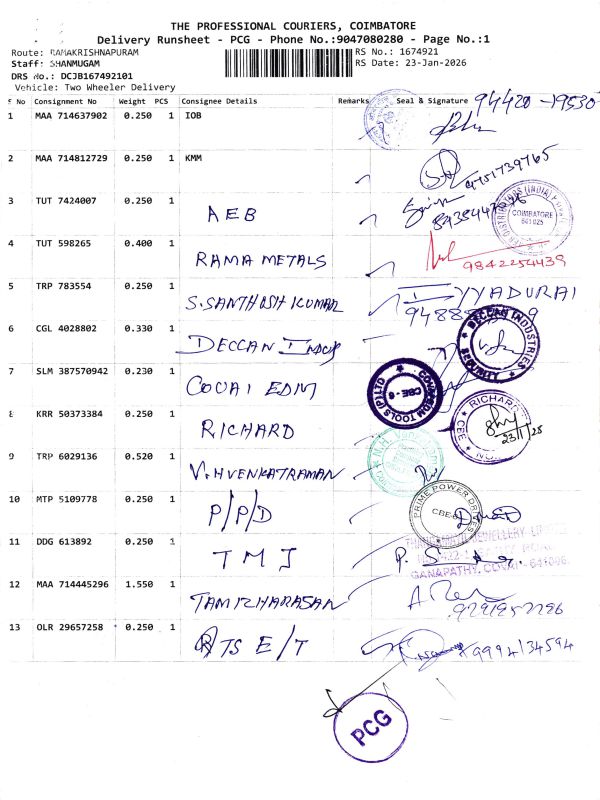 THE PROFESSIONAL COURIERS, COIMBATORE
Delivery Runsheet - PCG - Phone No.:9047080280 - Page No.:1
Route: RAMAKRISHNAPURAM
RS No.: 1674921
Staff: SHANMUGAM
RS Date: 23-Jan-2026
DRS No.: DCJB167492101
Vehicle: Two Wheeler Delivery
S No Consignment No Weight PCS Consignee Details Remarks Seal & Signature
94420-19530
1 MAA 714637902 0.250 1 IOB
2 MAA 714812729 0.250 1 KMM
9751739765
3 TUT 7424007 0.250 1 AEB
COIMBATORE
641025
4 TUT 598265 0.400 1 RAMA METALS
9842254439
5 TRP 783554 0.250 1 S.SANTHOSH KUMAR
IYYADURAI
6 CGL 4028802 0.330 1 DECCAN INDUS
DECCAN INDUSTRIES
7 SLM 387570942 0.230 1 COVAI EDM
COVAI EDM TOOLS (P) LTD
CBE - 6
8 KRR 50373384 0.250 1 RICHARD
RICHARD
CBE
9 TRP 6029136 0.520 1 V.H VENKATRAMAN
10 MTP 5109778 0.250 1 P/P/D
PRIME POWER DRIVES
CBE-6
11 DDG 613892 0.250 1 TMJ
JEWELLERY
GANAPATHY, COVAI - 641006.
12 MAA 714445296 1.550 1 TAMIZHARASAN
13 OLR 29657258 0.250 1 RTS E/T
9994134594
PCG